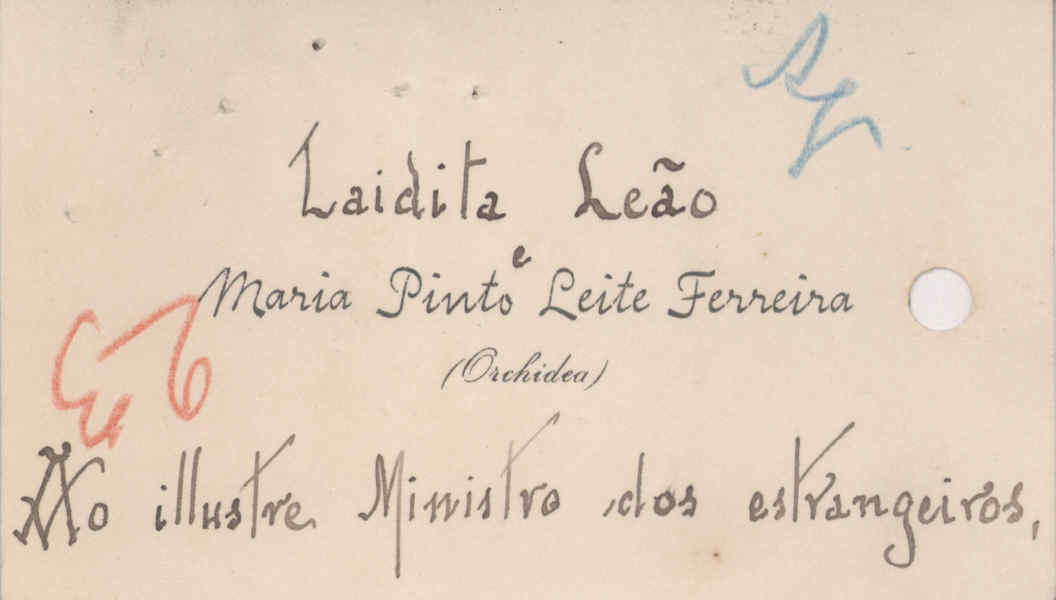 Laidita Leão
e
Maria Pinto Leite Ferreira
(Orchidea)
Ao illustre Ministro dos estrangeiros,